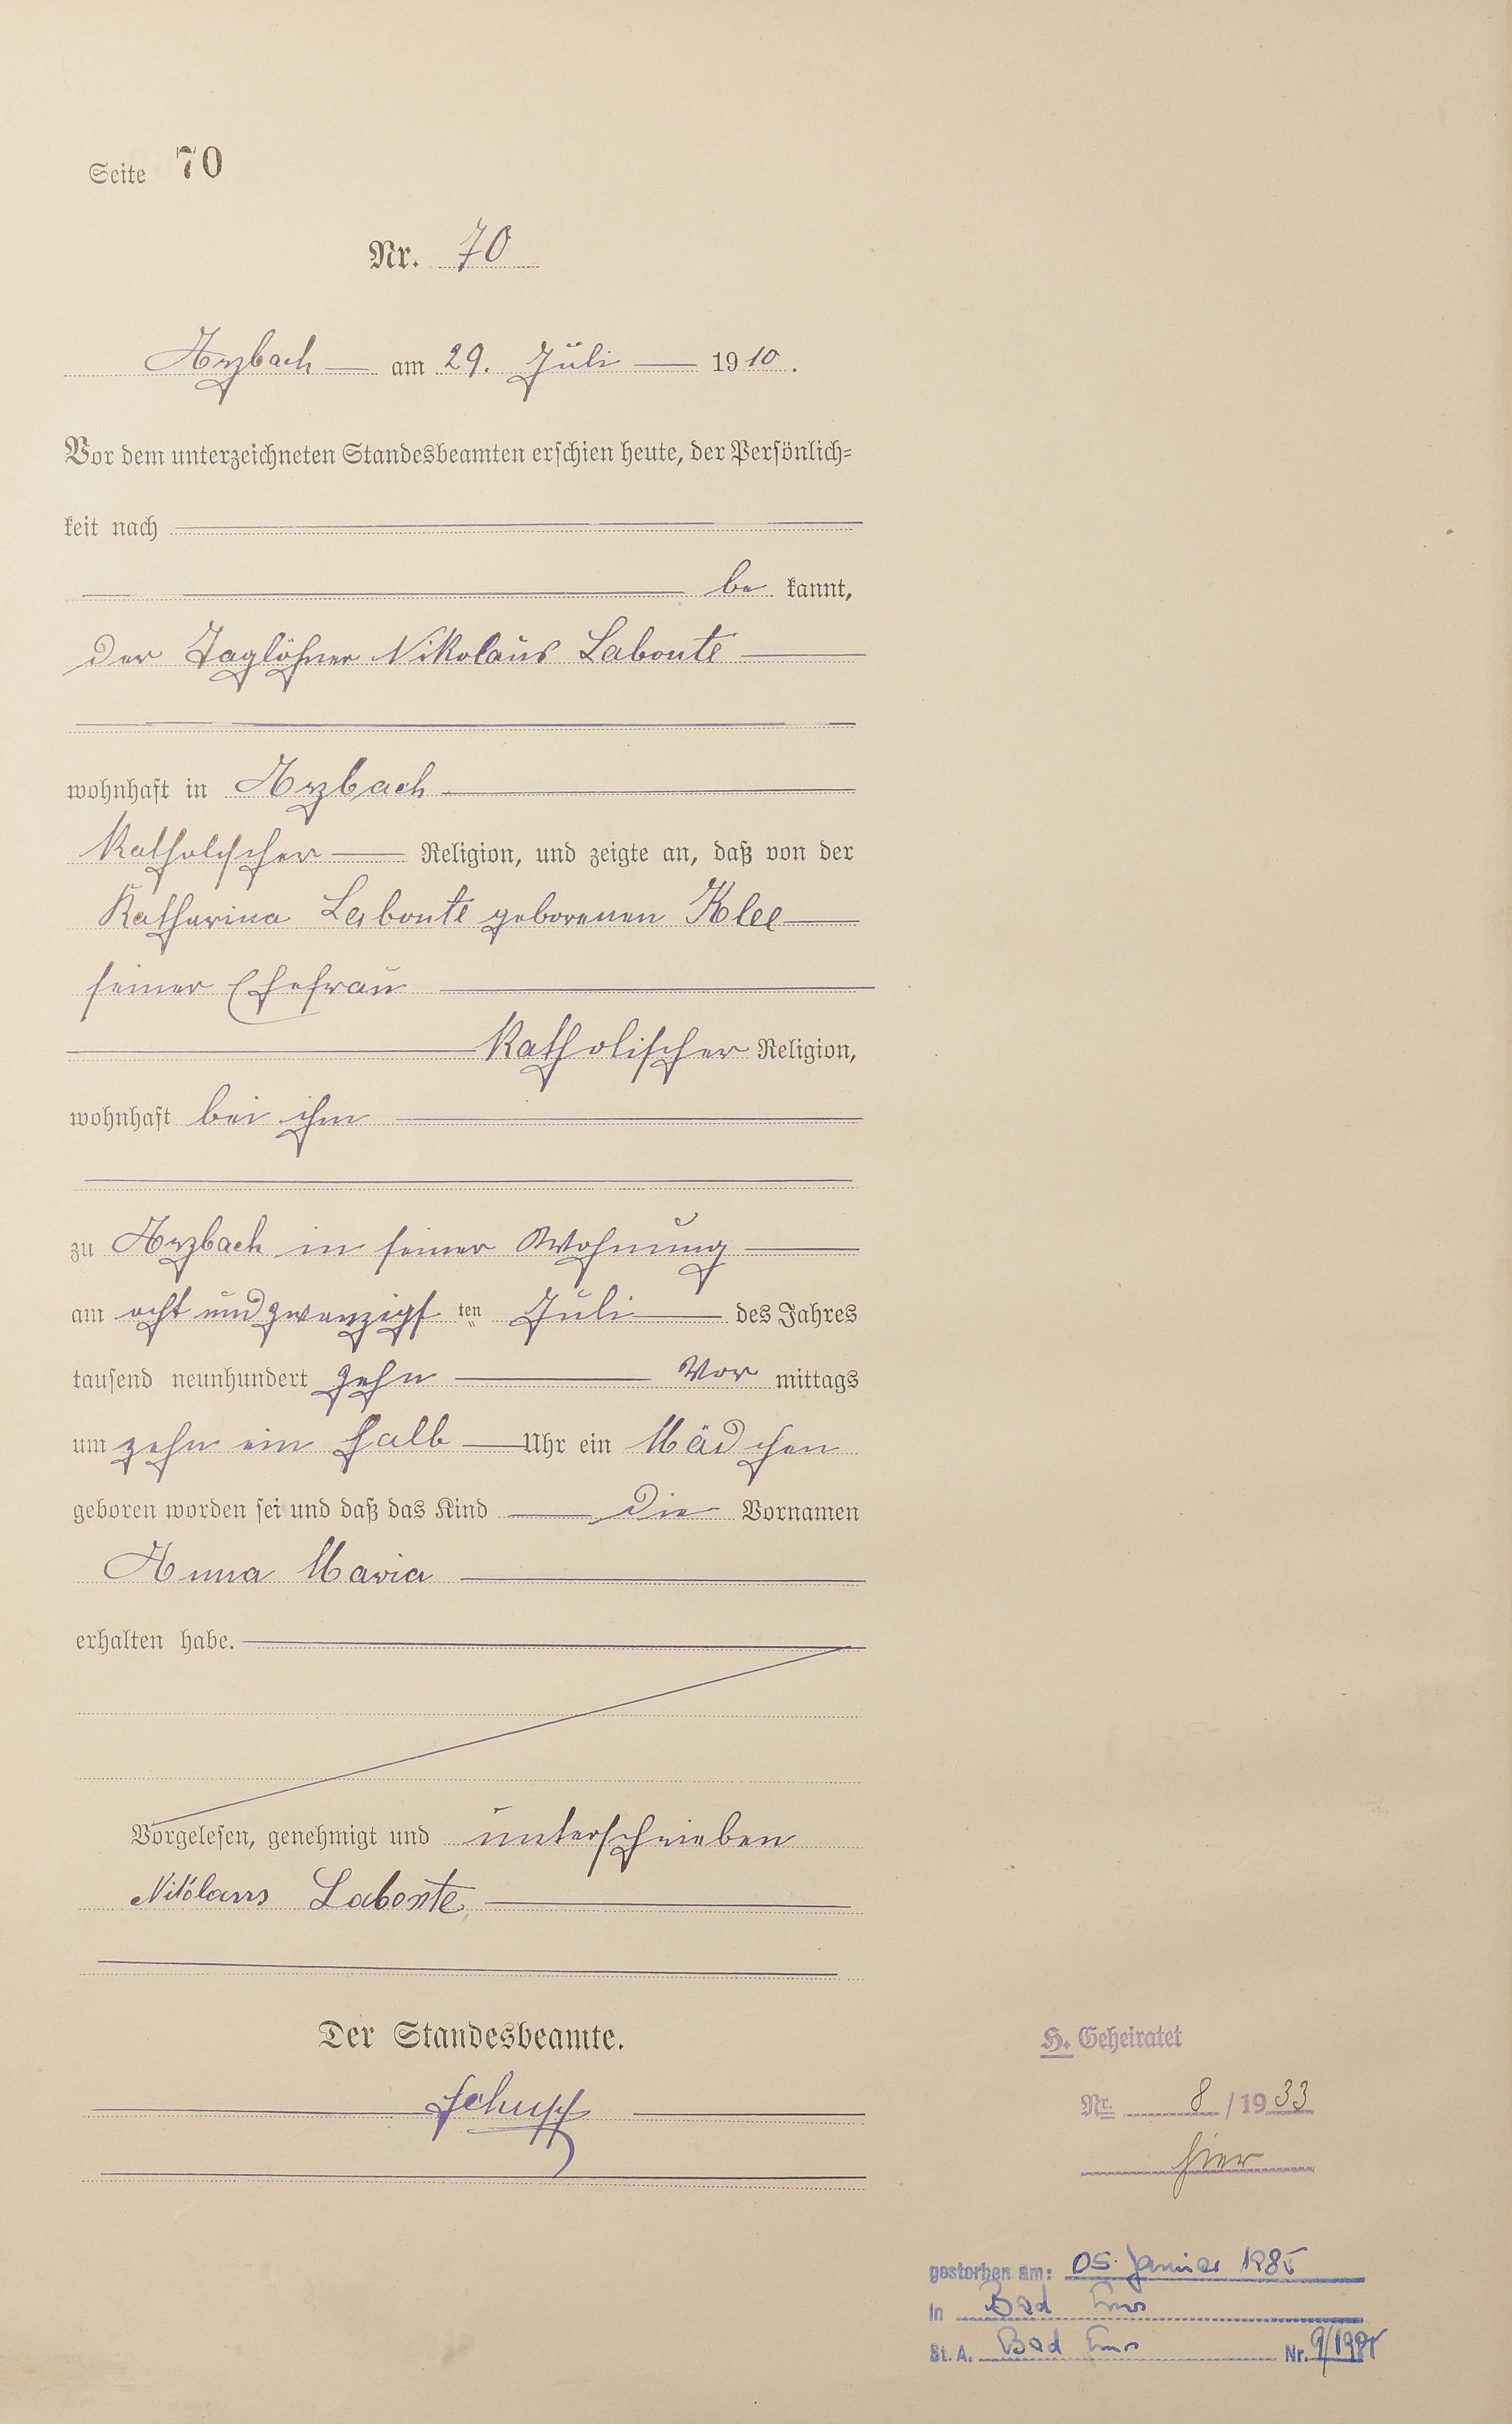 Seite 70
Nr. 70
Arzbach am 29. Juli 1910.
Vor dem unterzeichneten Standesbeamten erschien heute, der Persönlich-
keit nach
be kannt,
der Taglöhner Nikolaus Labonte
wohnhaft in Arzbach
Katholischer Religion, und zeigte an, daß von der
Katharina Labonte geborenen Klee
seiner Ehefrau
Katholischer Religion,
wohnhaft bei ihm
zu Arzbach in seiner Wohnung
am acht und zwanzigsten Juli des Jahres
tausend neunhundert zehn Vor mittags
um zehn ein halb Uhr ein Mädchen
geboren worden sei und daß das Kind die Vornamen
Anna Maria
erhalten habe.
Vorgelesen, genehmigt und unterschrieben
Nikolaus Labonte
Der Standesbeamte.
Schupp
H. Geheiratet
Nr. 8 / 1933
hier
gestorben am: 05. Januar 1985
in Bad Ems
St. A. Bad Ems Nr. 9/1985